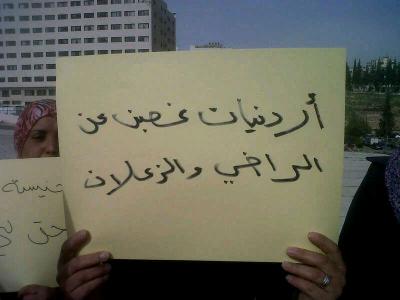 أردنيات غصبن عن
الراضي والزعلان
جنسية
حتى